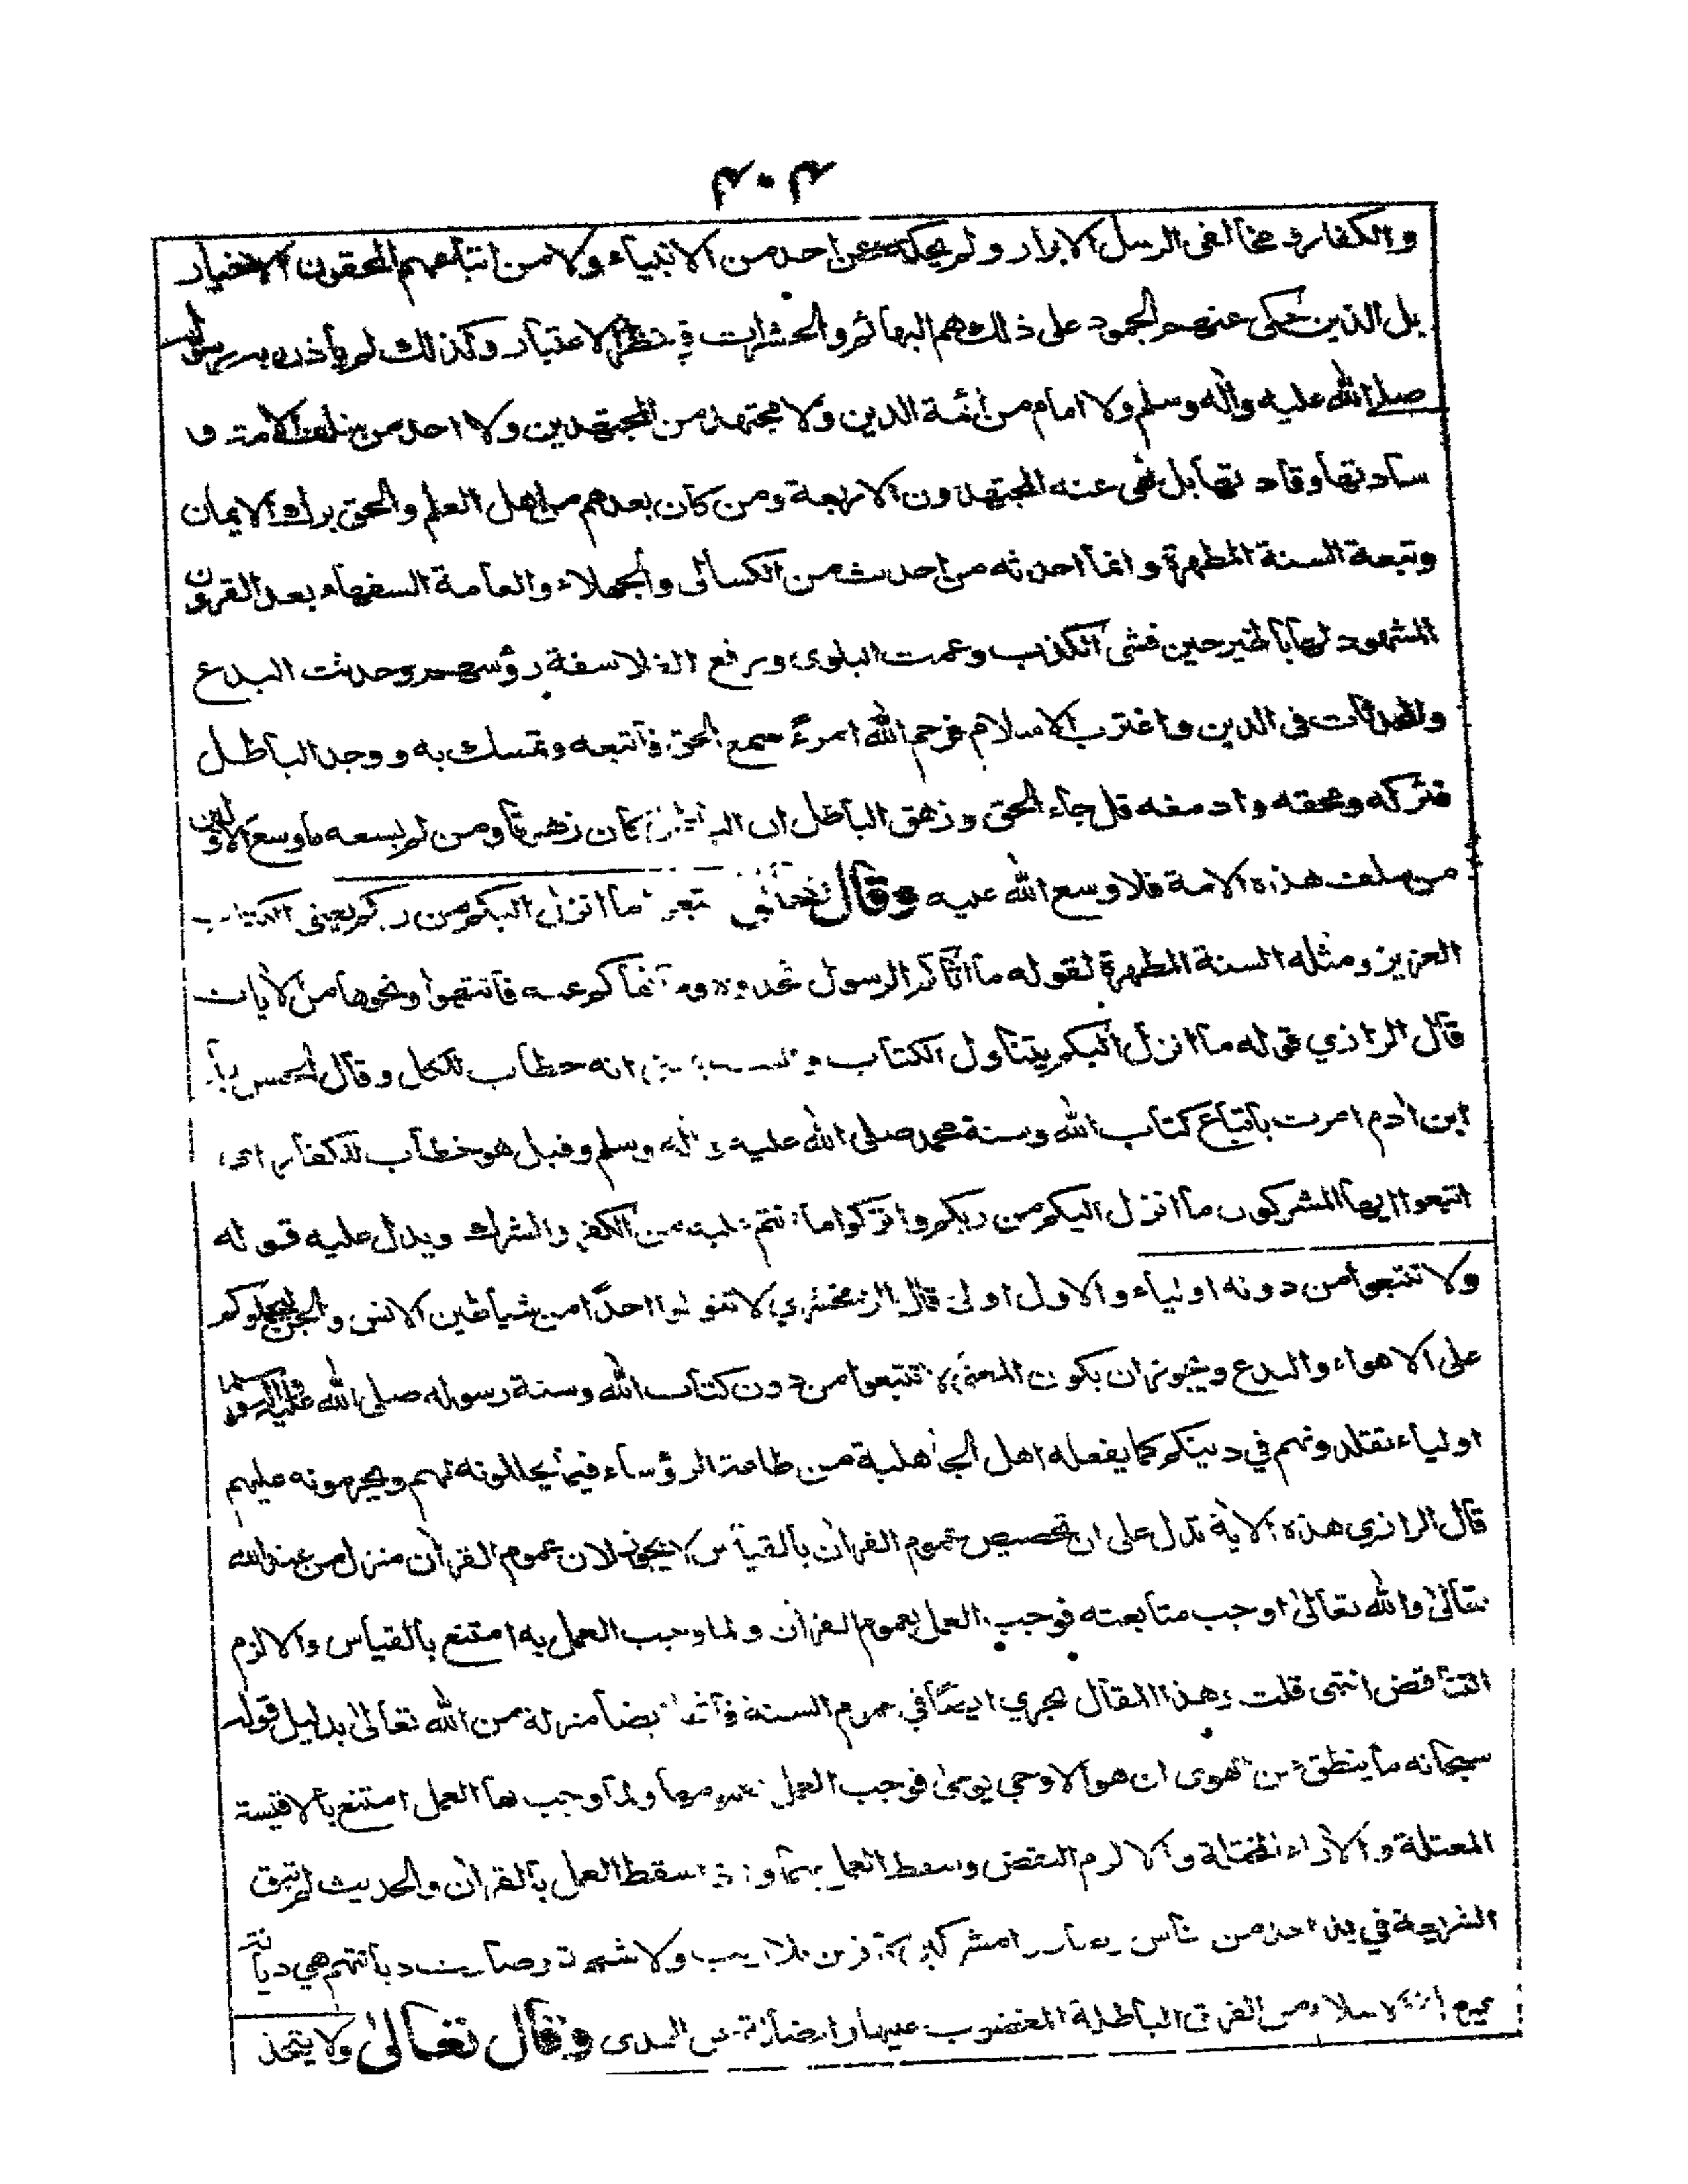 ٣٠٣
والكفار و مخالفى الرسل الابرار ولم يحكه عن احد من الانبياء ولا من اتباعهم المحقون الاخيار
بل الذين حكى عنهم الجمود على ذلك هم البهائم والحشرات فى نظر الاعتبار وكذلك لم يأذن به رسول الله
صلى الله عليه وآله وسلم ولا امام من ائمة الدين ولا مجتهد من المجتهدين ولا احد من سلف الامة و
سادتها وقادتها بل نهى عنه المجتهدون الاربعة ومن كان بعدهم من اهل العلم والحق برك الايمان
وتبعة السنة المطهرة وانما احدثه من احدث من الكسالى والجهلاء والعامة السفهاء بعد القرون
المشهود لها بالخير حين فشى الكذب وعمت البلوى ورفع الفلاسفة رؤسهم وحدثت البدع
والمحدثات فى الدين واغترب الاسلام فرحم الله امرءً سمع الحق فاتبعه وتمسك به ووجد الباطل
فتركه ومحقه وادمغه قل جاء الحق وزهق الباطل ان الباطل كان زهوقا ومن لم يسعه ما وسع الاولين
من سلف هذه الامة فلا وسع الله عليه وقال تعالى اتبعوا ما انزل اليكم من ربكم يعنى الكتاب
العزيز ومثله السنة المطهرة لقوله ما اتاكم الرسول فخذوه وما نهاكم عنه فانتهوا ونحوها من الآيات
قال الرازي قوله ما انزل اليكم يتناول الكتاب و انه خطاب للكل وقال الحسن يا
ابن آدم امرت باتباع كتاب الله وسنة محمد صلى الله عليه وآله وسلم وقيل هو خطاب للكفار اى
اتبعوا ايها المشركون ما انزل اليكم من ربكم واتركوا ما انتم عليه من الكفر والشرك ويدل عليه قوله
ولا تتبعوا من دونه اولياء والاول اولى قال الزمخشري لا تتولوا احدًا من شياطين الانس والجن ليحملوكم
على الاهواء والبدع ويجوز ان يكون المعنى لا تتبعوا من دون كتاب الله وسنة رسوله صلى الله عليه وآله وسلم
اولياء تقتلدونهم في دينكم كما يفعله اهل الجاهلية من طاعة الرؤساء فيما يحللونه لهم ويحرمونه عليهم
قال الرازي هذه الآية تدل على ان تخصيص عموم القرآن بالقياس لا يجوز لان عموم القرآن منزل من عند الله
تعالى والله تعالى اوجب متابعته فوجب العمل بعموم القرآن ولما وجب العمل به امتنع بالقياس والا لزم
التناقض انتهى قلت وهذا المقال يجري ايضًا في عموم السنة فانها ايضا منزلة من الله تعالى بدليل قوله
سبحانه ما ينطق عن الهوى ان هو الا وحي يوحى فوجب العمل بعمومها ولما وجب بها العمل امتنع بالاقيسة
المعتلة والآراء المختلة والا لزم النقض وسقط العمل بهما واذا سقط العمل بالقرآن والحديث لم تبق
الشريعة في يد احد من بلا ريب ولا شبهة وصارت ديانتهم هي ديانة
جميع من الفرق الباطلة المغضوب عليها والضالة عن الهدى وقال تعالى ولا يتخذ